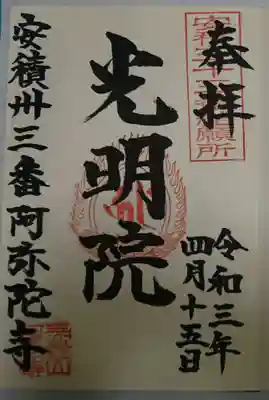 奉拝
令和三年
四月十五日
光明院
安積卅三番阿弥陀寺